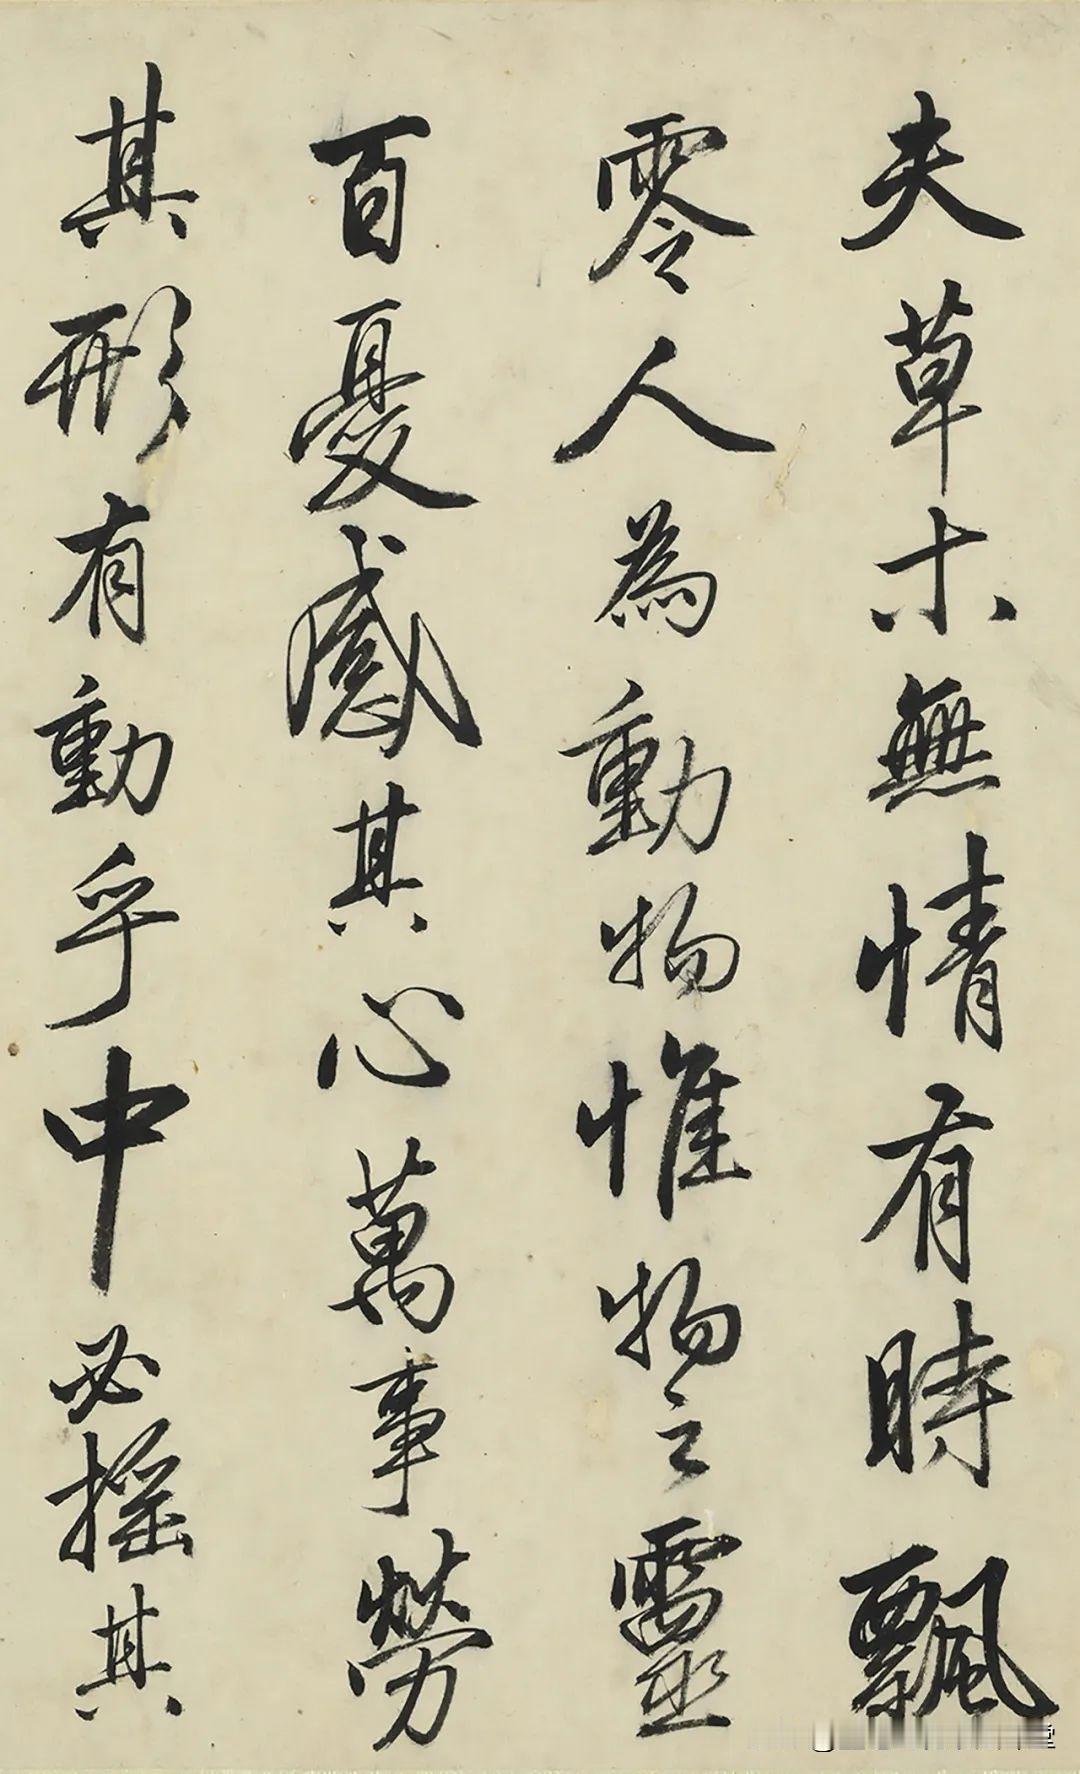 夫草木無情有時飄
零人為動物惟物之靈
百憂感其心萬事勞
其形有動乎中必搖其